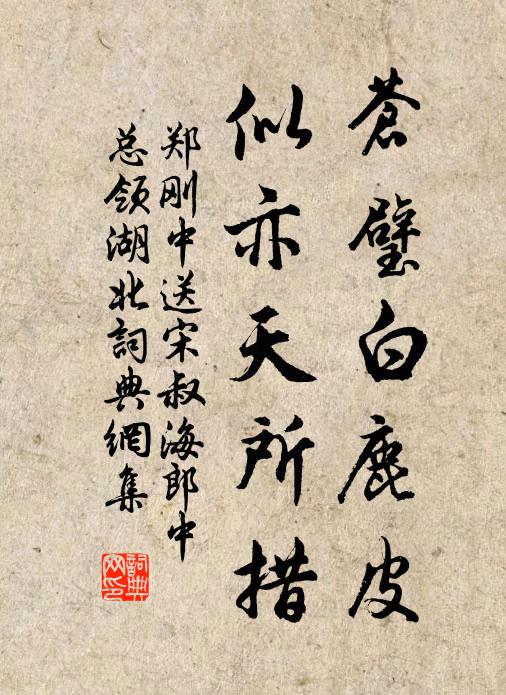 蒼璧白鹿皮
似亦天所措
郑刚中送宋叔海郎中
总领湖北詞典網集
詞典网印